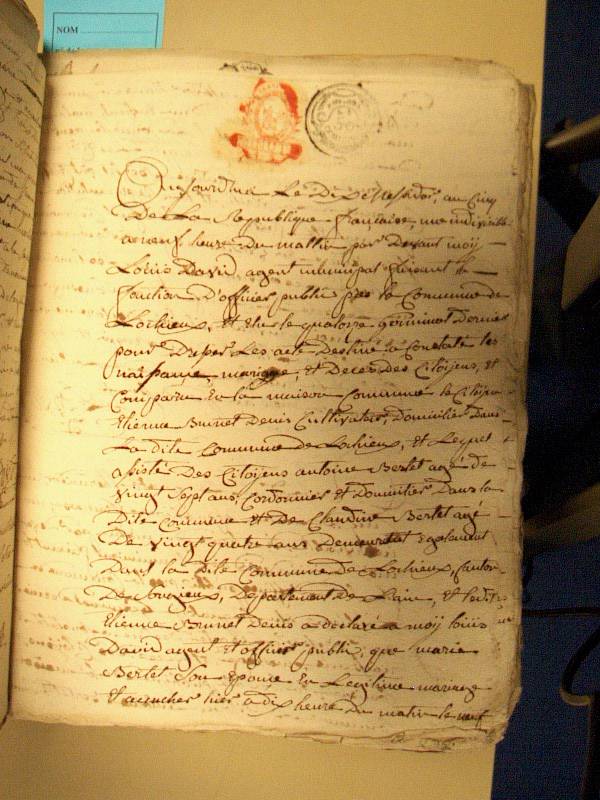 NOM
Aujourd'hui Le Dix Messidor, an Cinq
De La Republique francaise, une indivisible
a neuf heure Du mattin par Devant moy
Louis David, agent municipal faisant la
fonction D'officier public pres la Commune de
Lochieux, et Elu le quatorze germinal Dernier
pour Dresser Les acte Destiné a Constaté les
naissance, mariage, et Deces Des Citoyens, est
Comparu En la maison Commune le Citoyen
Etienne Brunet Denis Cultivateur, Domicilier Dans
La dite Commune de Lochieux, et Lequel
assisté Des Citoyens antoine Bertet agé de
vingt Sept ans, Cordonnier et Domicilier Dans la
Dite Commune et De Claudine Bertet agé
De vingt quatre ans Demeurant Egalement
Dans la Dite Commune de Lochieux, Canton
De Songieux, Departement De L'ain, et ledit
Etienne Brunet Denis a déclaré a moy Louis
David agent et officier publi, que marie
Bertet Son Epouse En Legitime mariage
Et acoucher hier a dix heure Du matin le neuf